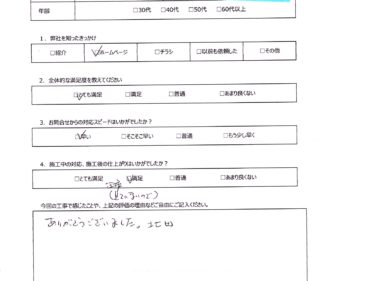 年齢 □30代 □40代 □50代 □60代以上
1．弊社を知ったきっかけ
□紹介 ☑ホームページ □チラシ □以前も依頼した □その他
2．全体的な満足度を教えてください
☑とても満足 □満足 □普通 □あまり良くない
3．お問合せからの対応スピードはいかがでしたか？
☑早い □そこそこ早い □普通 □もう少し早く
4．施工中の対応、施工後の仕上がりはいかがでしたか？
□とても満足 ☑満足 □普通 □あまり良くない
今回の工事で感じたことや、上記の評価の理由などご自由にご記入ください。
ありがとうございました。